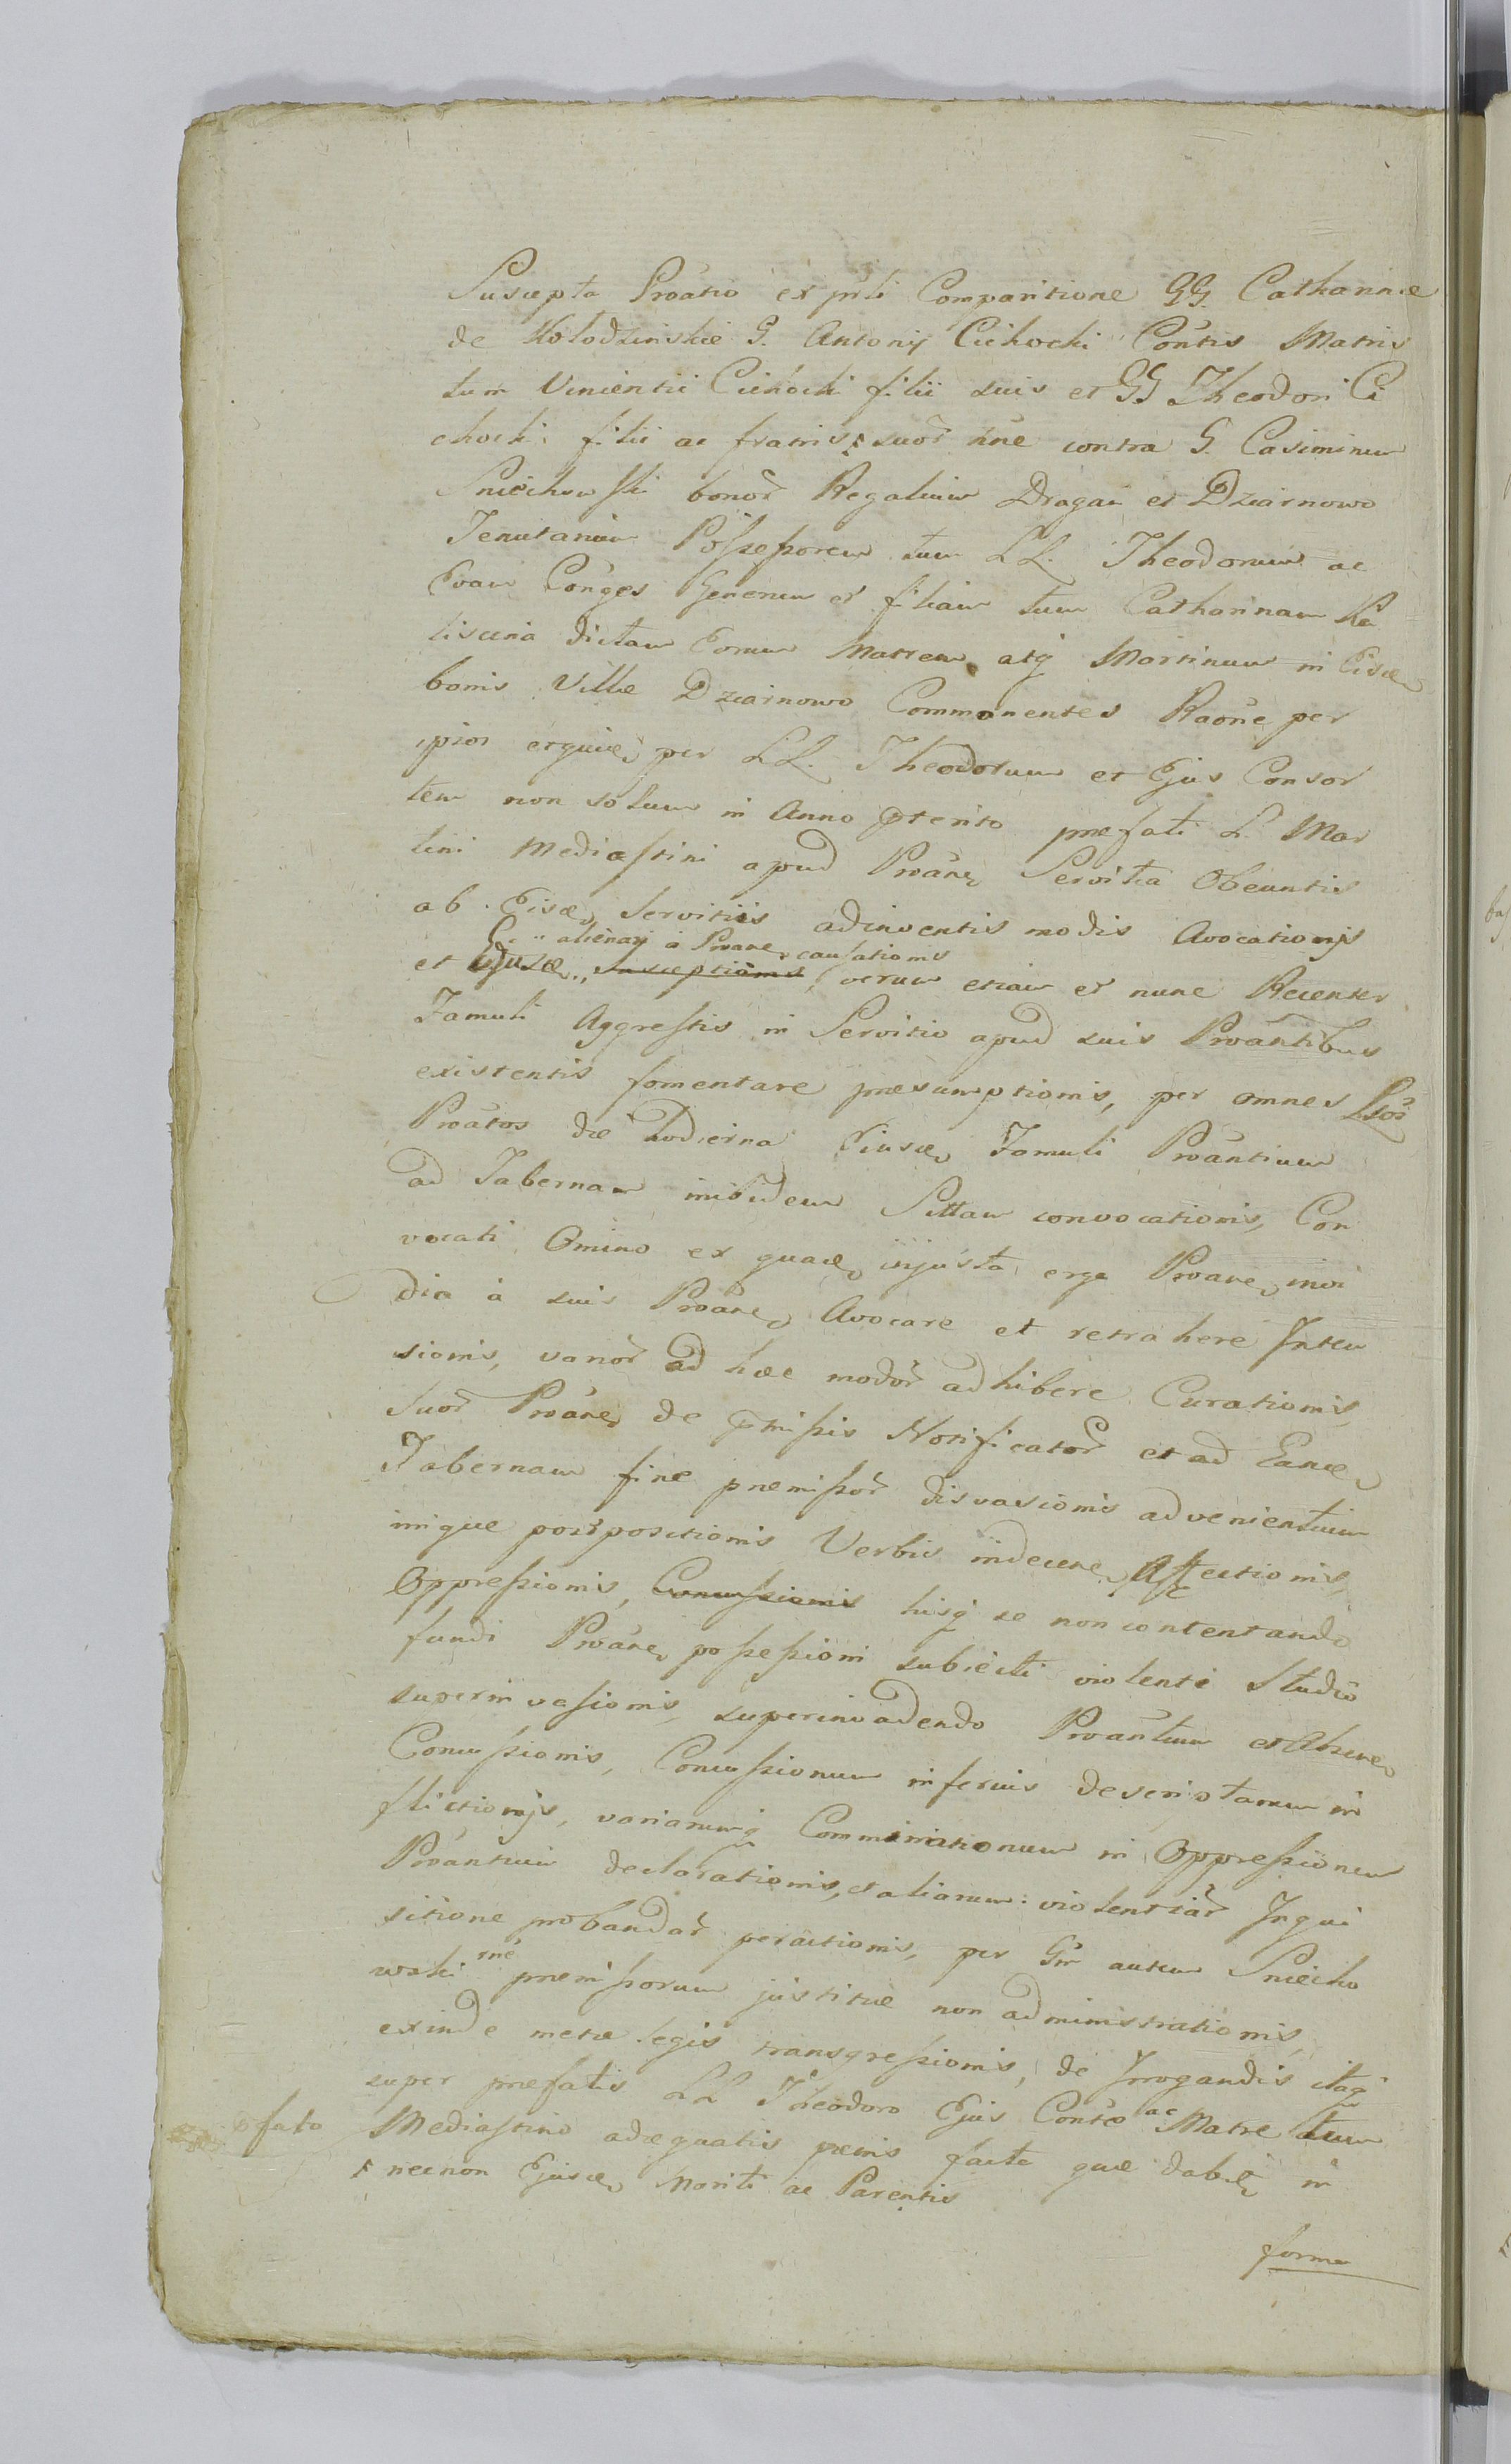 Suscepta Proatio ex prti Comparitione GG. Catharinæ
de Kołodzinskie G. Antonij Cichocki Contis Matris
tum Vincentii Cichocki filii suis et GG Theodori Ci
chocki filii ac fratris suor nne contra G. Casimirum
Sniechowski bonor Regalium Dragan et Dziarnowo
Tenutarium Possessorem tum LL. Theodorum ac
Evam Conges Generum et filiam tum Catharinam Ka
liscina dictam Eorum Matrem atq Martinum in Eisd
bonis Villæ Dziarnowo Commonentes Raone per
ipsos erquidem per LL. Theodorum et Ejus Consor
tem non solum in Anno pterito præfati L. Mar
tini Mediastini apud Proane Servitia Obeuntis
ab Eisd Servitiis adinventis modis Avocationis
alienay a Proane causationis
et Ejusd susceptionis, verum etiam et nunc Recenter
Famuli Aggrestis in Servitio apud suis Proantibus
existentis fomentare præsumptionis, per omnes
Proatos die hodierna Ejusd Famuli Proantium
ad Tabernam inibidem Sittam convocationis, Con
vocati Omino ex quad injusta erga Proane invi
dia a suis Proane Avocare et retrahere Inten
sionis, varior ad hæc modor adhibere Curationis,
Suor Proane de pmissis Notificator et ad Eand
Tabernam fine præmissor disvasionis advenientium
inique postpositionis Verbis indecene Affectionis,
Oppressionis, Concussionis hisq se non contentando
fundi Proane possessioni subiecti violenti Studio
superinvasionis, superinvadendo Proantium et
Concussionis, Concussionum inferius descriptarum in
flictionis, variarumq Comminationum in Oppressionem
Proantium declarationis, et aliarum violentiar Inqui
sitione probandar peractionis, per Gm autem Sniecho
wski rne præmissorum justitiæ non administrationis,
exinde metæ legis transgressionis, de Irrogandis itaq
super præfatis LL Theodoro Ejus Conte ac Matre tum
pfato Mediastino adæquatis pænis facta quæ dabit in
necnon Ejusd Mariti ac Parentis
forma